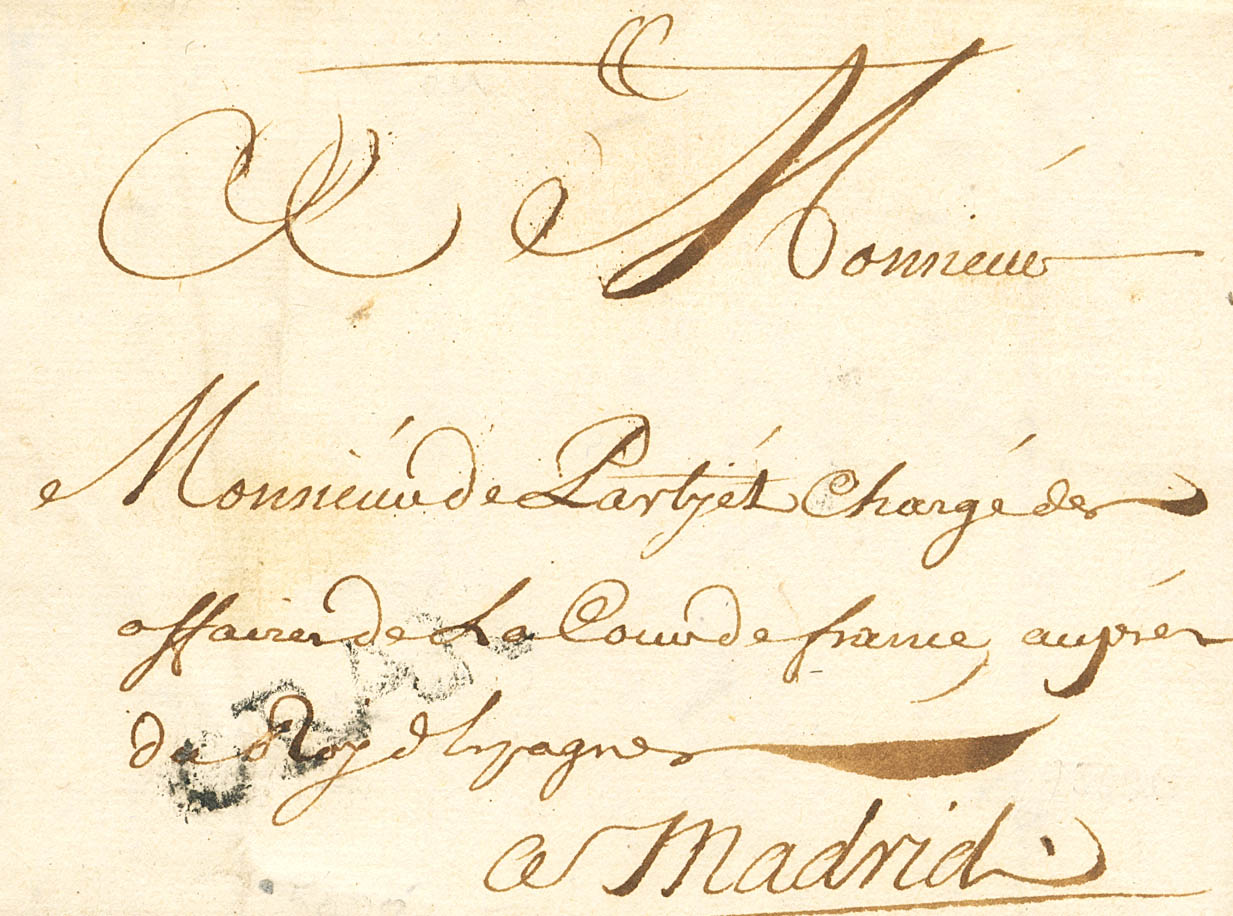 A Monsieur
Monsieur de Partyét Chargé des
affaires de La Cour de france, auprés
du Roy d'Espagnes
a Madrid